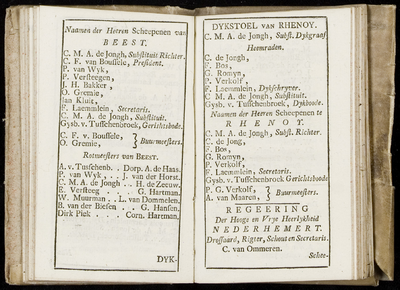 Naamen der Heeren Scheepenen van
BEEST.
C. M. A. de Jongh, Substituit Richter.
C. F. van Boussele, President.
P. van Wyk,
P. Versteegen,
J. H. Bakker,
O. Gremie,
Jan Kluit,
F. Laemmlein, Secretaris.
C. M. A. de Jongh, Substituit.
Gysb. v. Tusschenbroek, Gerichtsbode.
C. F. v. Boussele,
O. Gremie, } Buurmeesters.
Rotmeesters van BEEST.
A. v. Tusschenb. . Dorp. A. de Haas.
P. van Wyk, . . J. van der Horst.
C. M. A. de Jongh . . H. de Zeeuw.
E. Versteeg . . . . G. Hartman.
W. Muurman . . L. van Dommelen.
B. van der Biesen . . G. Hansen.
Dirk Piek . . . . Corn. Hartman.
DYK-
DYKSTOEL VAN RHENOY.
C. M. A. de Jongh, Subst. Dykgraaf
Heemraden.
C. de Jongh,
F. Bos,
G. Romyn,
P. Verkolf,
F. Laemmlein, Dykschryver.
C. M. A. de Jongh, Substituit.
Gysb. v. Tusschenbroek, Dykbode.
Naamen der Heeren Scheepenen te
RHENOY.
C. M. A. de Jongh, Subst. Richter.
C. de Jong,
F. Bos,
G. Romyn,
P. Verkolf,
F. Laemmlein, Secretaris.
Gysb. v. Tusschenbroek Gerichtsbode.
P. G. Verkolf,
A. van Maaren, } Buurmeesters.
REGEERING
Der Hooge en Vrye Heerlykheid
NEDERHEMERT.
Drossaard, Rigter, Schout en Secretaris.
C. van Ommeren.
Schee-